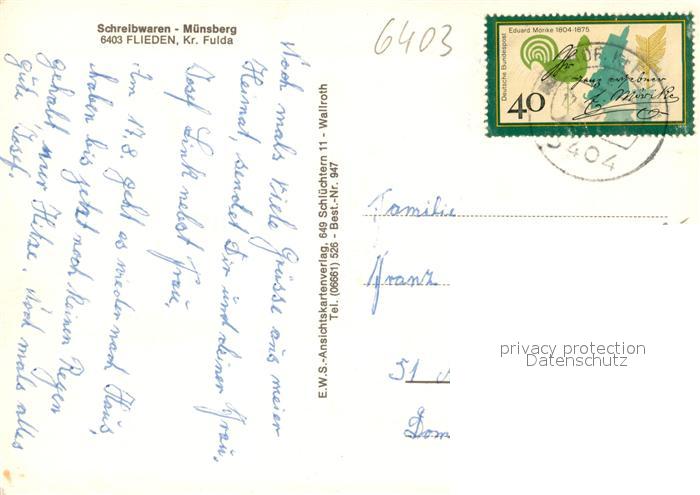 Schreibwaren - Münsberg
6403 FLIEDEN, Kr. Fulda
6403
Noch mals viele Grüsse aus meier
Heimat, sendet Dir und deiner Frau,
Josef Link nebst Frau,
Am 17.8. geht es wieder nach Haus,
haben bis jetzt noch keinen Regen
gehabt, nur Hitze. Noch mals alles
gute Josef.
E.W.S.-Ansichtskartenverlag, 649 Schlüchtern 11 - Wallroth
Tel. (06661) 526 - Best.-Nr. 947
Deutsche Bundespost
Eduard Mörike 1804-1875
40
Ihr
ganz ergebner
E. Mörike
5404
Familie
Franz
51
Dom
privacy protection
Datenschutz